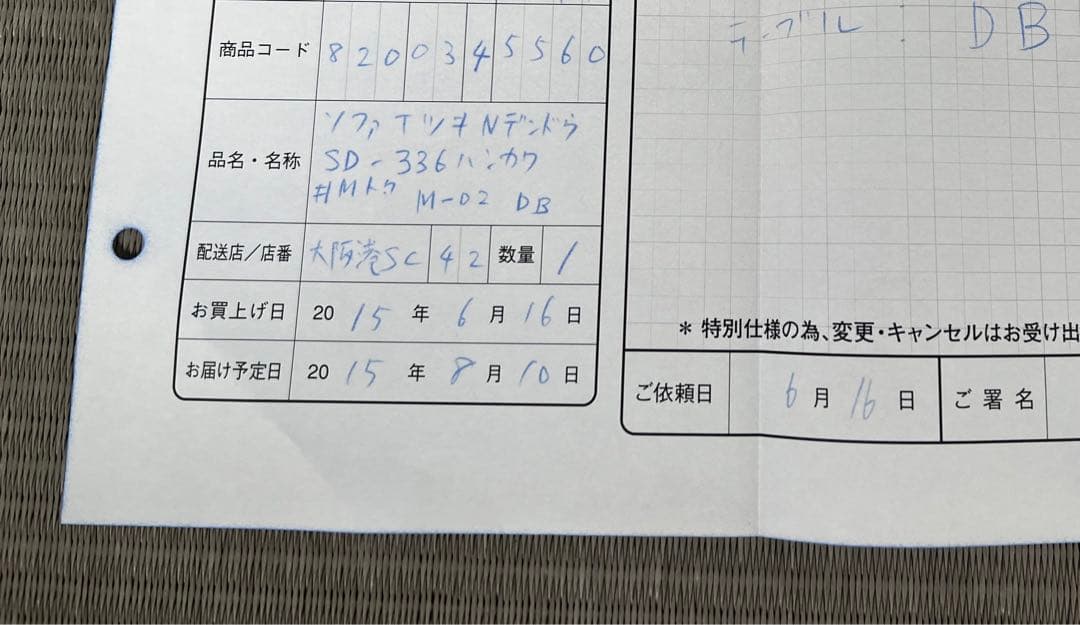 商品コード 8200345560
品名・名称 ソファ Tツキ Nデンドウ
SD-336ハンカワ
#Mトク M-02 DB
配送店/店番 大阪港SC 42 数量 1
お買上げ日 2015年6月16日
お届け予定日 2015年8月10日
テーブル : DB
* 特別仕様の為、変更・キャンセルはお受け出
ご依頼日 6月16日 ご署名